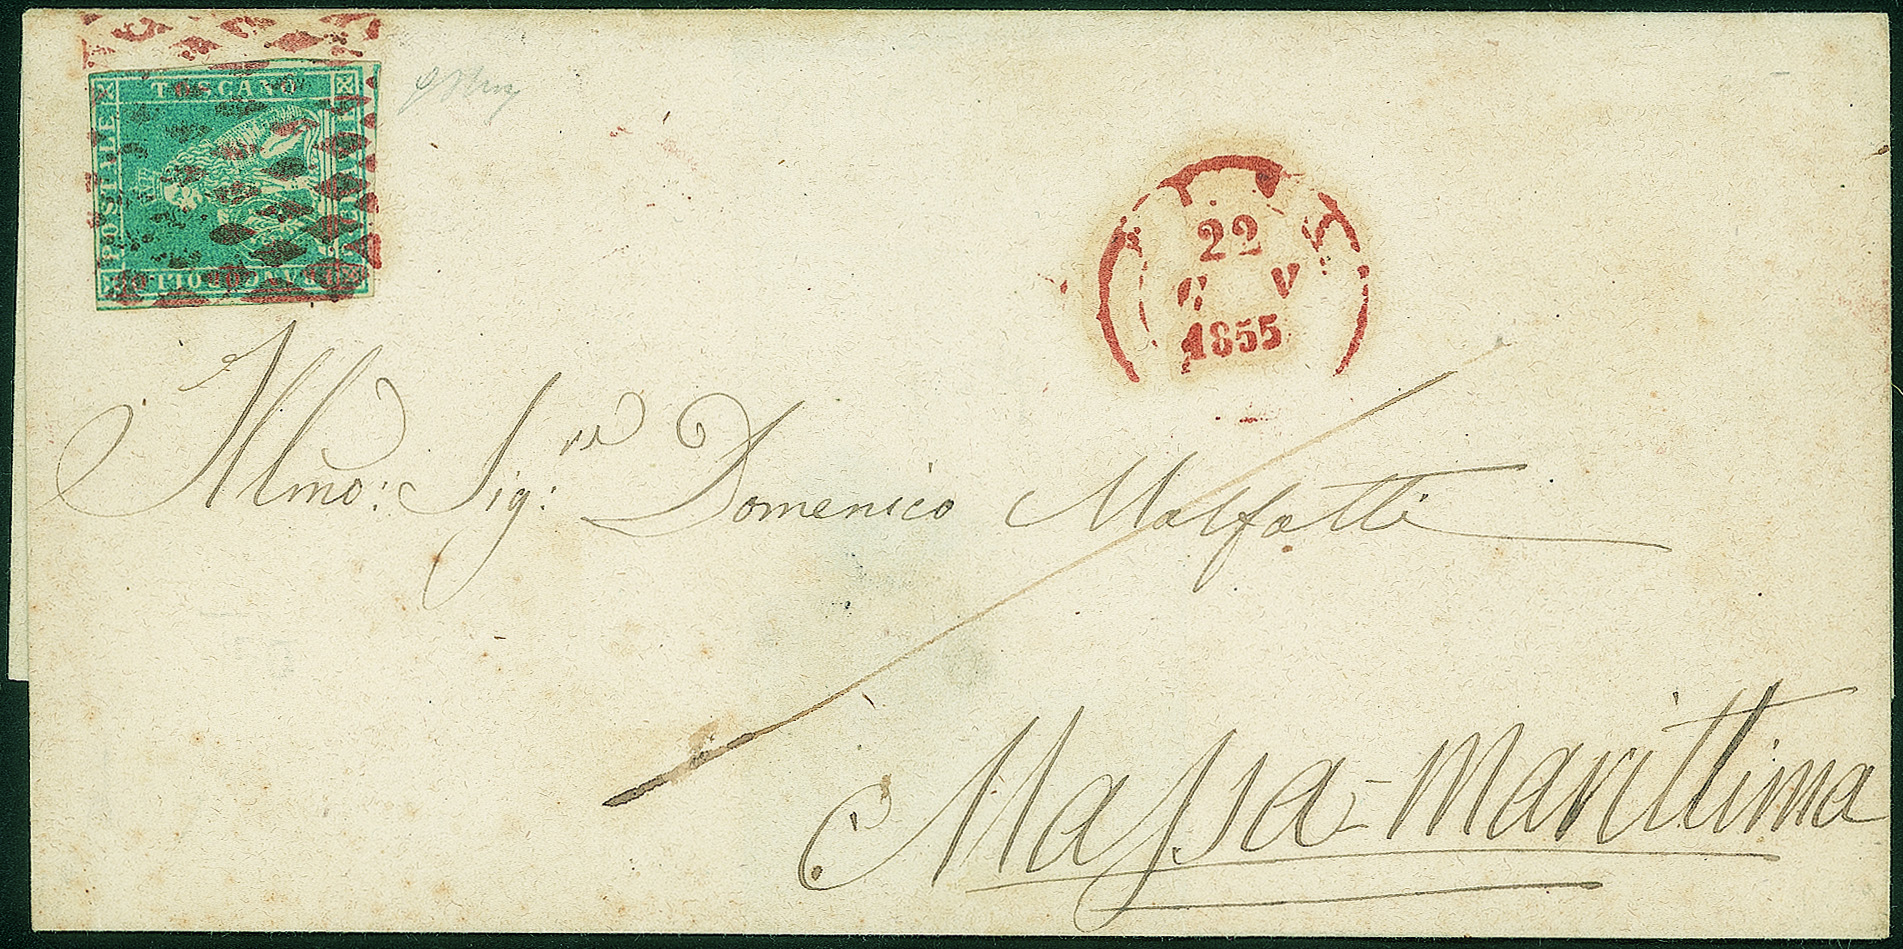 FRANCOBOLLO
POSTALE
TOSCANO
22
1855
Illmo: Sig:re Domenico Malfatti
Massa-Marittima